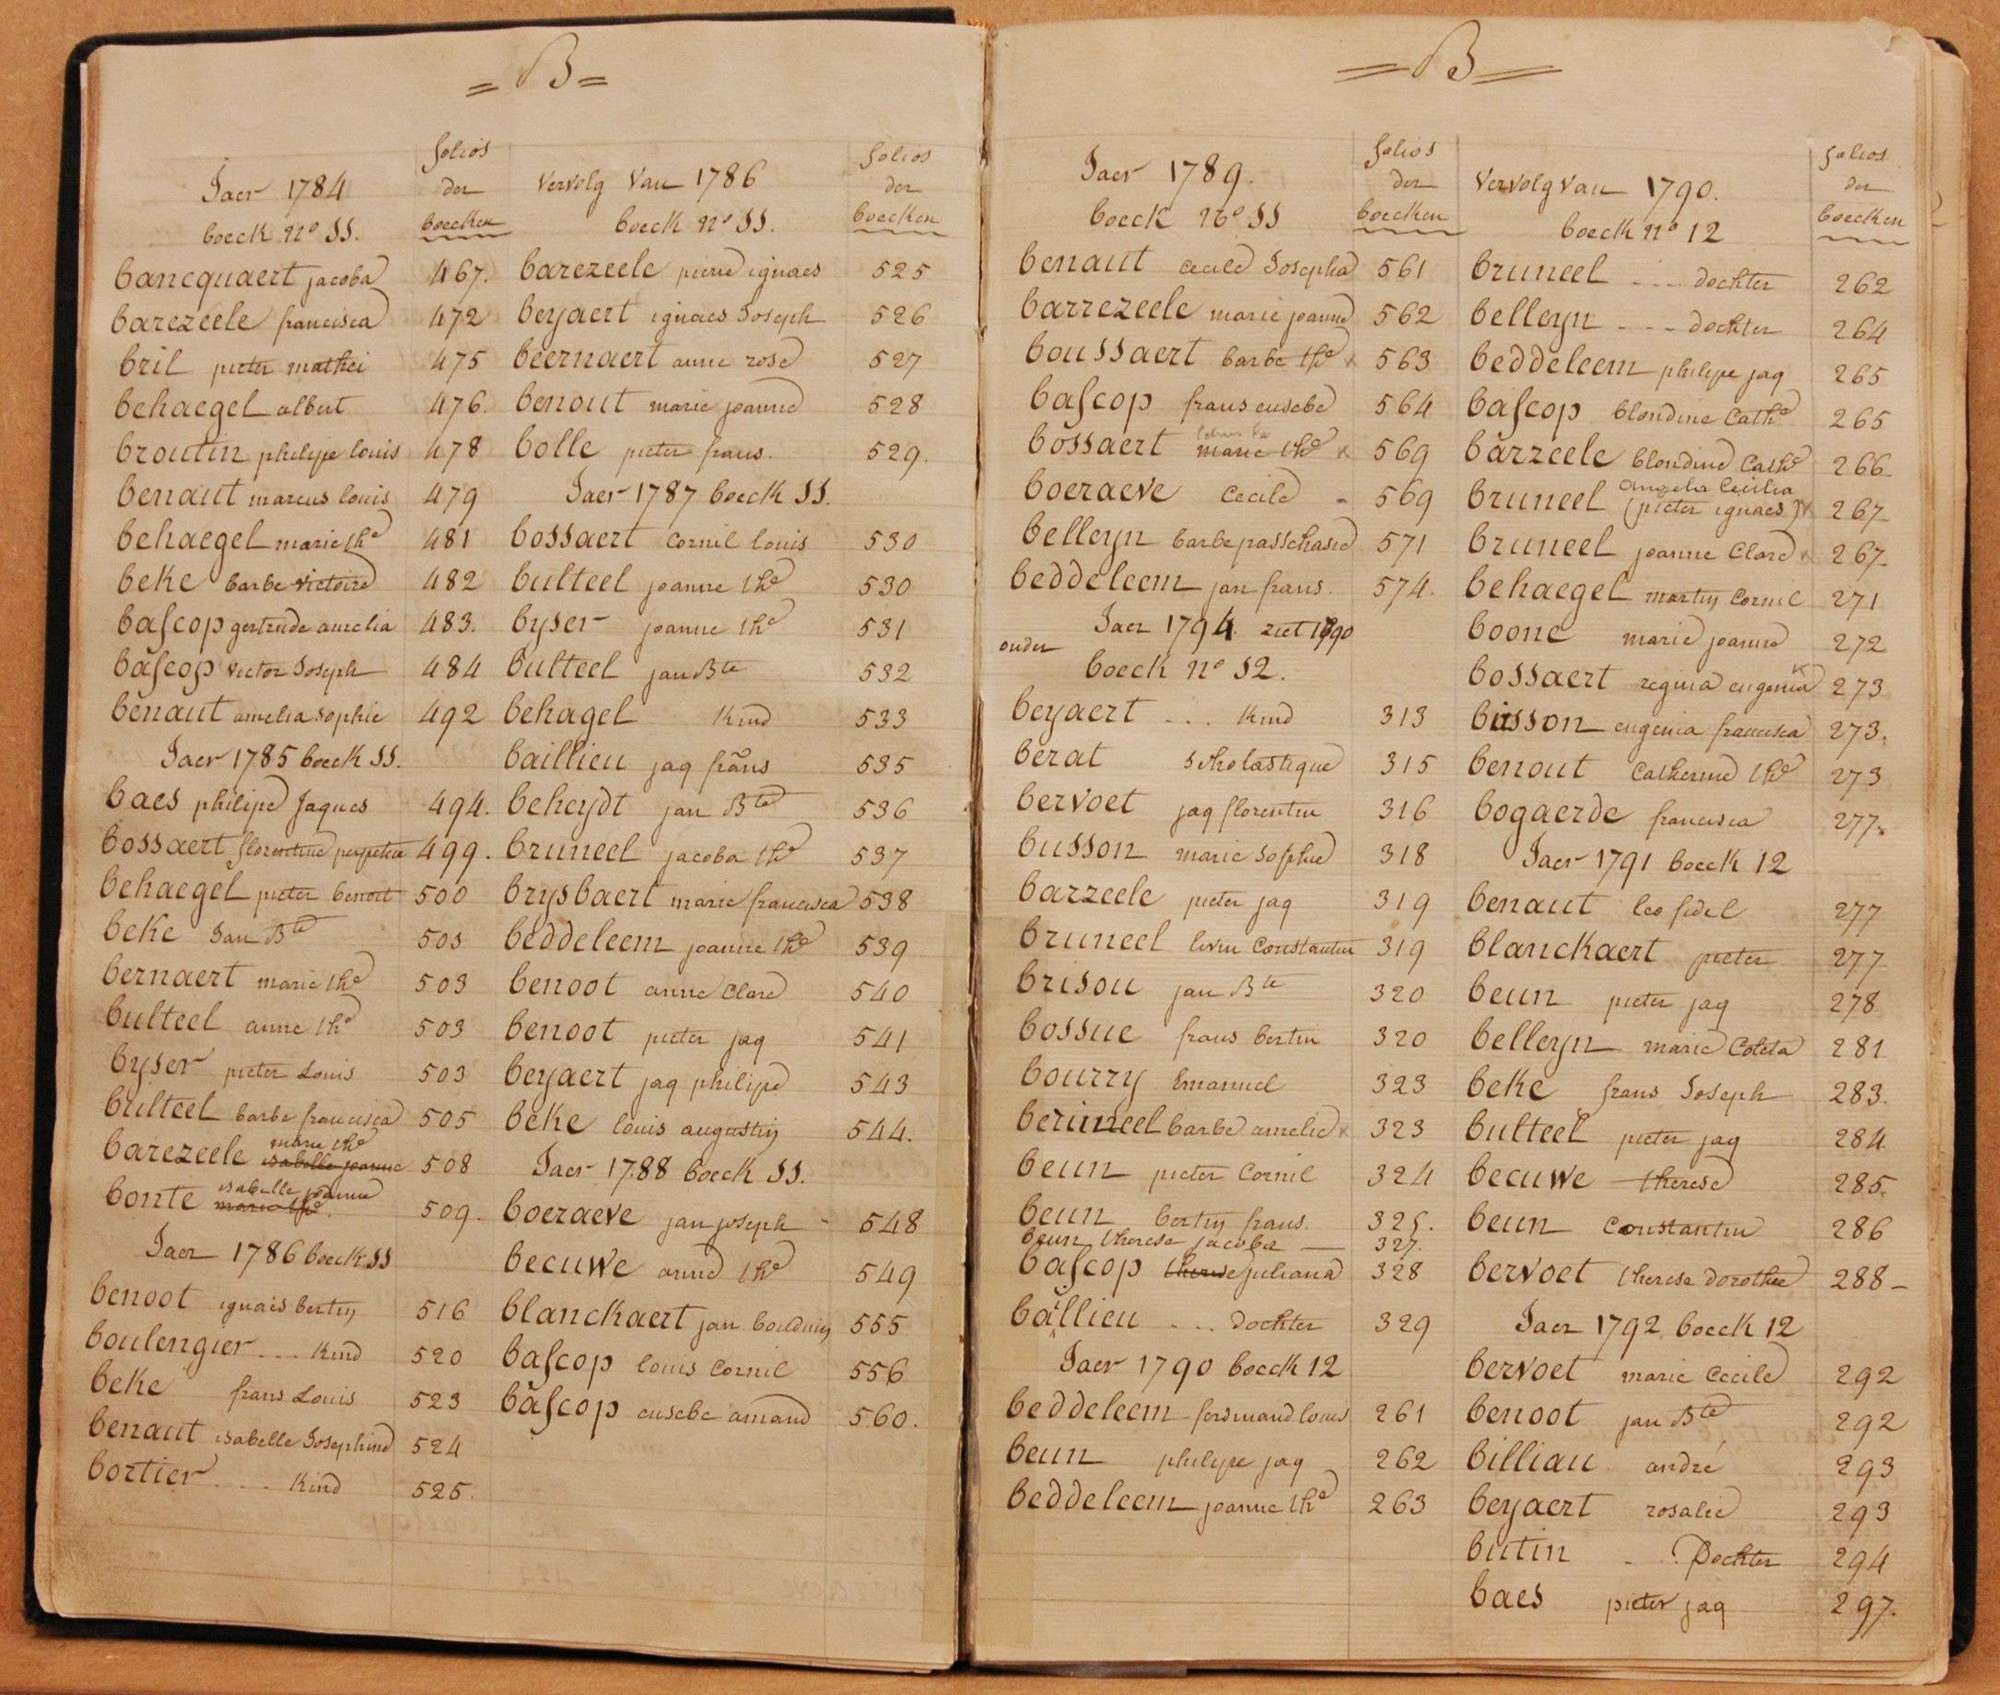 = B =
Jaer 1784
boeck nº SS.
folios
der
boecken
bancquaert jacoba 467.
barezeele francisca 472
bril pieter mathei 475
behaegel albert 476.
broutin philipe louis 478
benaut marcus louis 479
behaegel marie thé 481
beke barbe victoire 482
baſcop gertrude amelia 483.
baſcop victor Joseph 484
benaut amelia sophie 492
Jaer 1785 boeck SS.
baes philipe Jaques 494.
bossaert florentine perpetua 499.
behaegel pieter benoit 500
beke Jan Bte 503
bernaert marie thé 503
bulteel anne thé 503
byser pieter Louis 503
bulteel barbe francisca 505
marie thé
barezeele isabelle joanne 508
isabelle joanne
bonte marie thé. 509.
Jaer 1786 boeck SS
benoot ignais bertin 516
boulengier ... kind 520
beke frans Louis 523
benaut isabelle Josephine 524
bortier ... kind 525.
vervolg van 1786
boeck nº SS.
folios
der
boecken
barezeele pierre ignaes 525
beyaert ignaes Joseph 526
beernaert anne rose 527
benout marie joanne 528
bolle pieter frans. 529.
Jaer 1787 boeck SS.
bossaert cornil louis 530
bulteel joanne thé 530
byser joanne thé 531
bulteel jan Bte 532
behagel kind 533
baillieu jaq frans 535
beheydt jan Bte 536
bruneel jacoba thé 537
brysbaert marie francisca 538
beddeleem joanne thé 539
benoot anne Clare 540
benoot pieter jaq 541
beyaert jaq philipe 543
beke louis augustin 544.
Jaer 1788 boeck SS.
boeraeve jan joseph 548
becuwe anne thé 549
blanckaert jan bouduin 555
baſcop louis cornil 556
baſcop eusebe amand 560.
= B =
Jaer 1789.
boeck nº SS
folios
der
boecken
benaut cecile Josepha 561
barrezeele marie joanne 562
boussaert barbe thé x 563
baſcop frans eusebe 564
bossaert marie thé x 569
boeraeve cecile 569
belleyn barbe passchasie 571
beddeleem jan frans. 574.
Jaer 1794. ziet 1790
onder
boeck nº 12.
beyaert ... kind 313
berat scholastique 315
bervoet jaq florentin 316
busson marie sophie 318
barzeele pieter jaq 319
bruneel livin Constantin 319
brisou jan Bte 320
bossue frans bertin 320
bourry Emanuel 323
berimeel barbe amelie x 323
beun pieter Cornil 324
beun bertin frans. 325.
beun therese jacoba — 327.
baſcop therese juliana 328
baillieu ... dochter 329
Jaer 1790 boeck 12
beddeleem ferdinand louis 261
beun philipe jaq 262
beddeleem joanne thé 263
vervolg van 1790.
boeck nº 12
folios
der
boecken
bruneel ... dochter 262
belleyn ... dochter 264
beddeleem philipe jaq 265
baſcop blondine Cathe 265
barzeele blondine Cathe 266.
angela Cecilia
bruneel (pieter ignaes) x 267
bruneel joanne Clare x 267.
behaegel martin Cornil 271
boone marie joanne 272
bossaert regina eugenia x 273
busson eugenia francisca 273.
benout Catherine thé 273
bogaerde francisca 277.
Jaer 1791 boeck 12
benaut leo fidel 277
blanckaert pieter 277
beun pieter jaq 278
belleyn marie Coleta 281
beke frans Joseph 283.
bulteel pieter jaq 284
becuwe therese 285.
beun Constantin 286
bervoet therese dorothee 288 –
Jaer 1792 boeck 12
bervoet marie Cecile 292
benoot jan Bte 292
billiau andré 293
beyaert rosalie 293
butin . Dochter 294
baes pieter jaq 297.